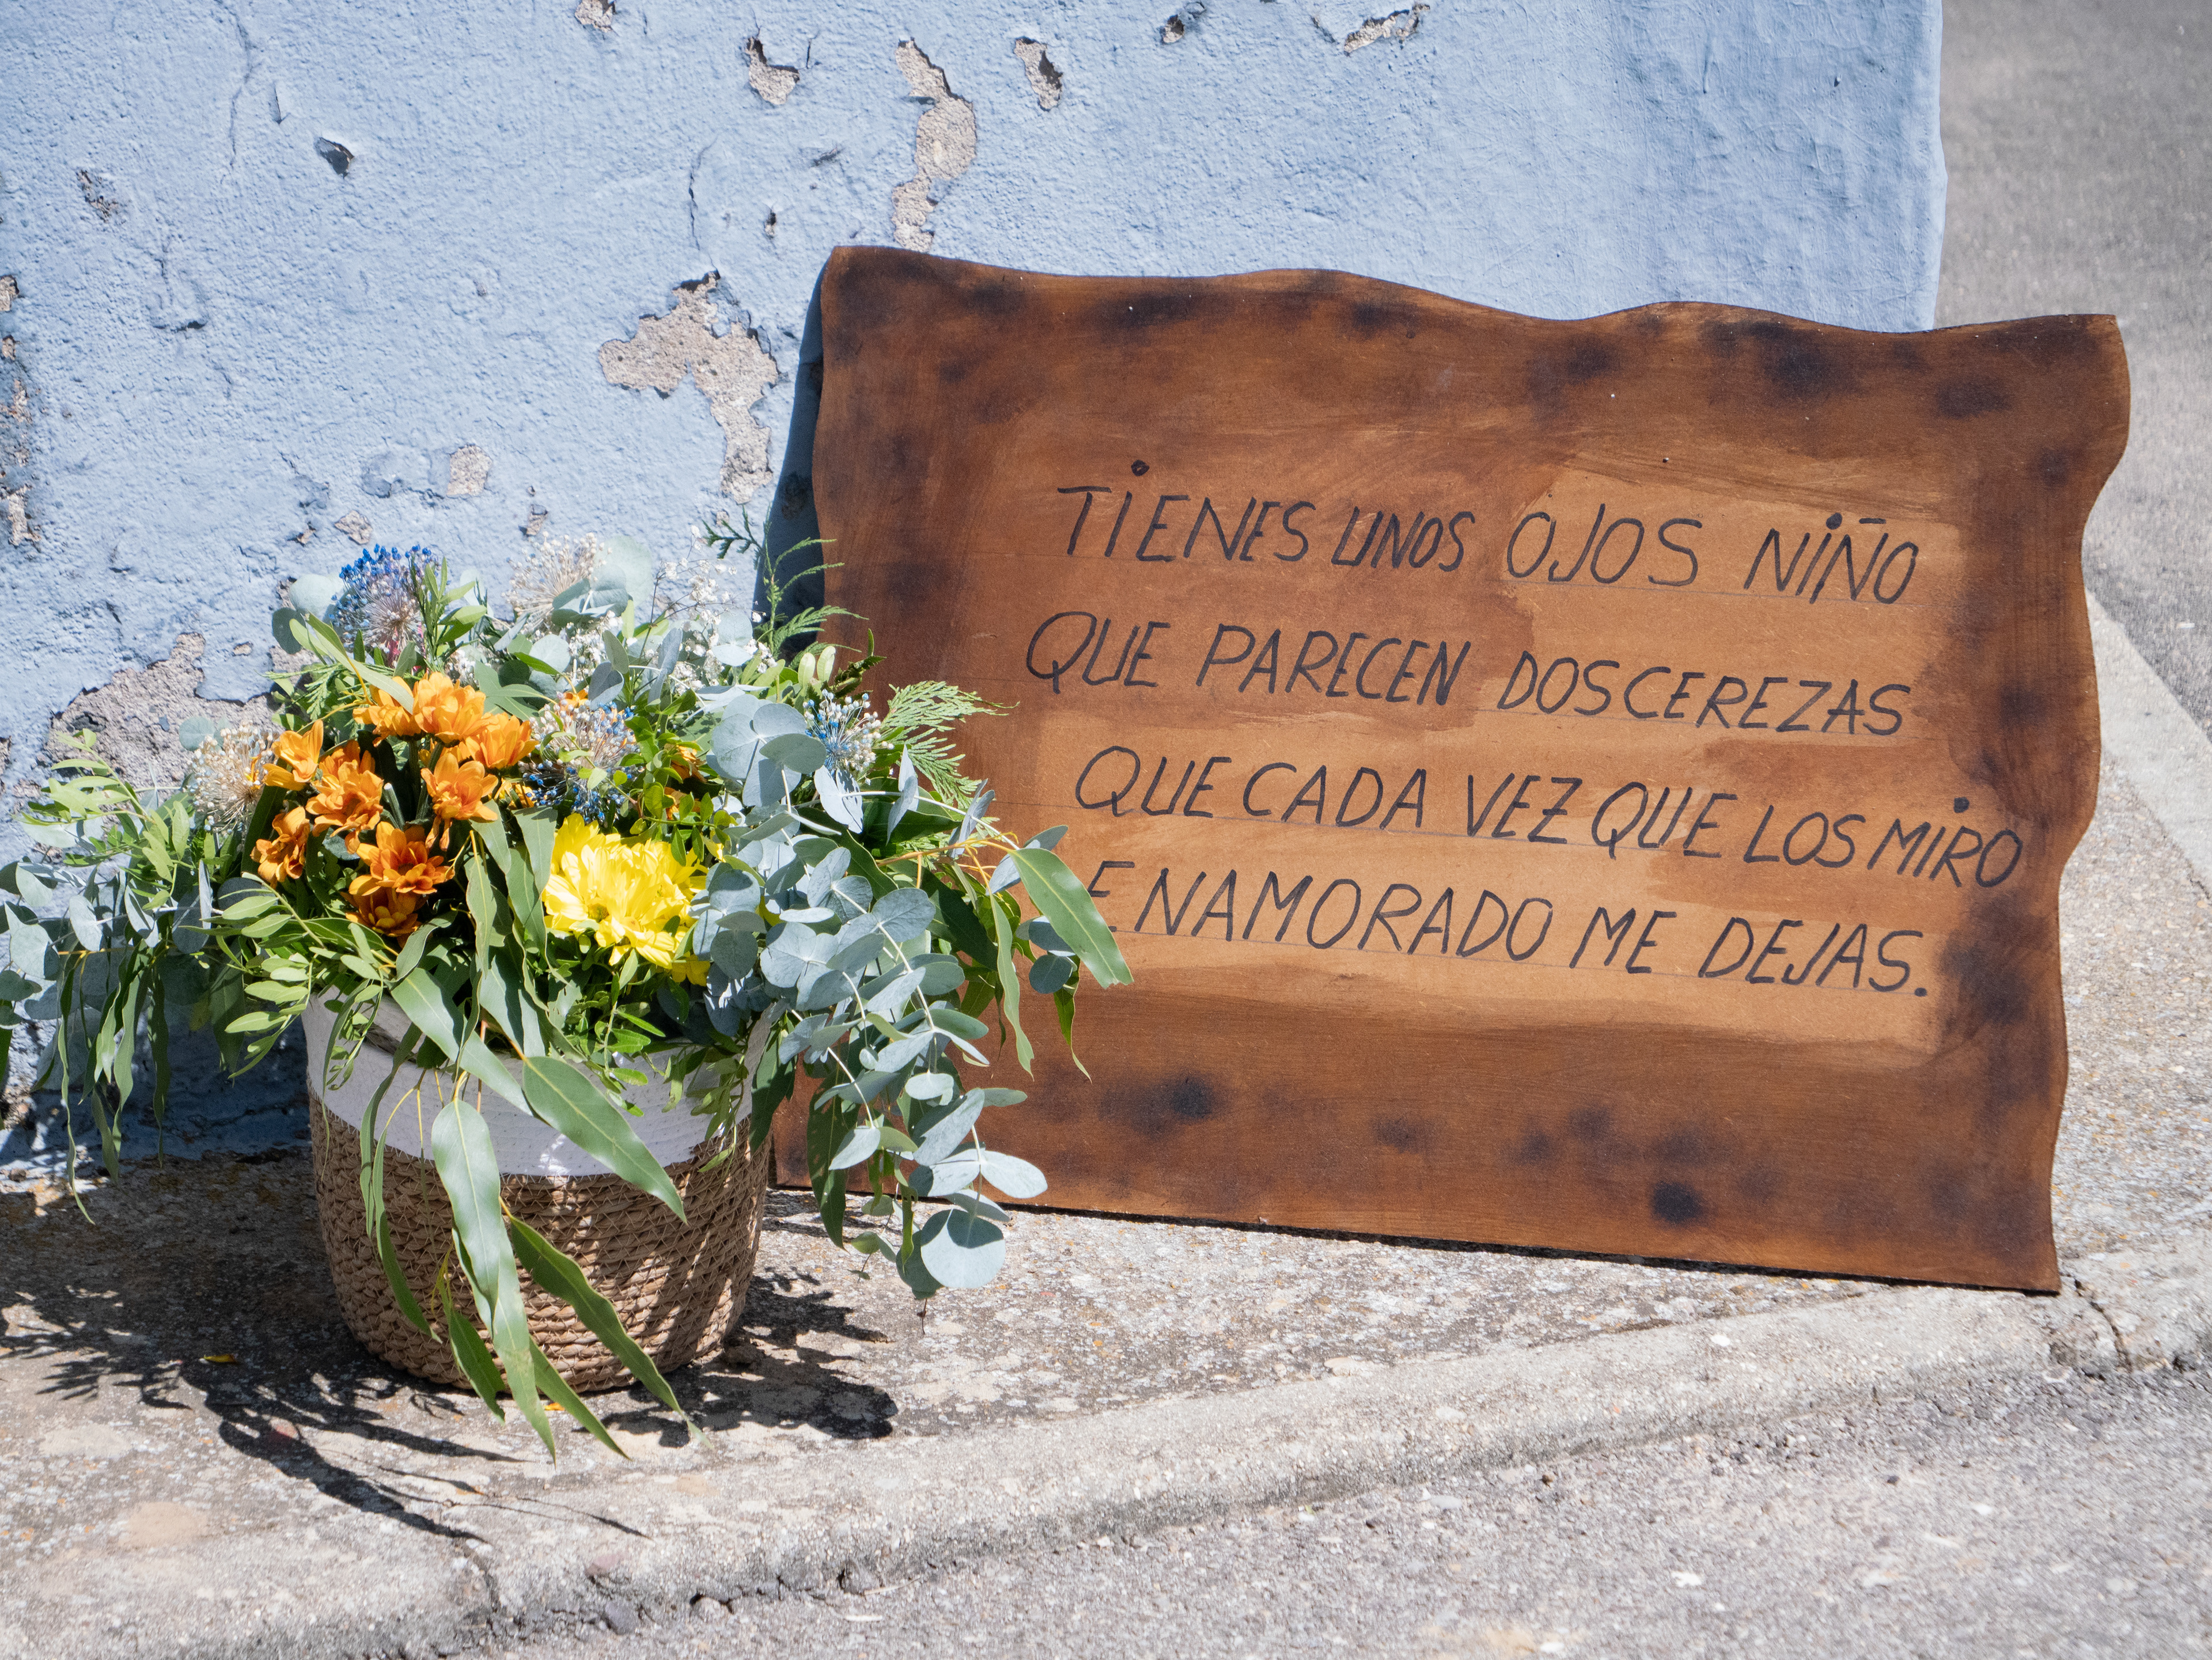 TIENES UNOS OJOS NIÑO
QUE PARECEN DOS CEREZAS
QUE CADA VEZ QUE LOS MIRO
ENAMORADO ME DEJAS.